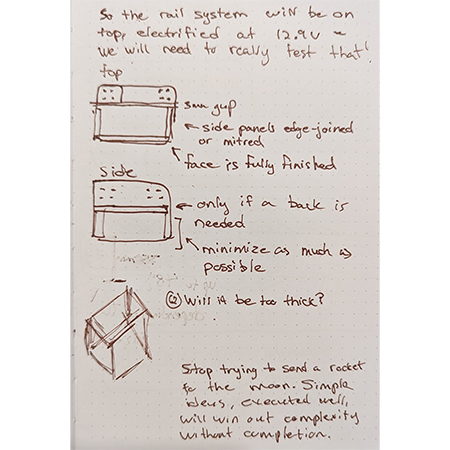 So the rail system will be on
top, electrified at 12.9V -
we will need to really test that!
top
3mm gap
side panels edge-joined
or mitred
face is fully finished
side
only if a back is
needed
minimize as much as
possible
Q Will it be too thick?
Stop trying to send a rocket
to the moon. Simple
ideas, executed well,
will win out complexity
without completion.